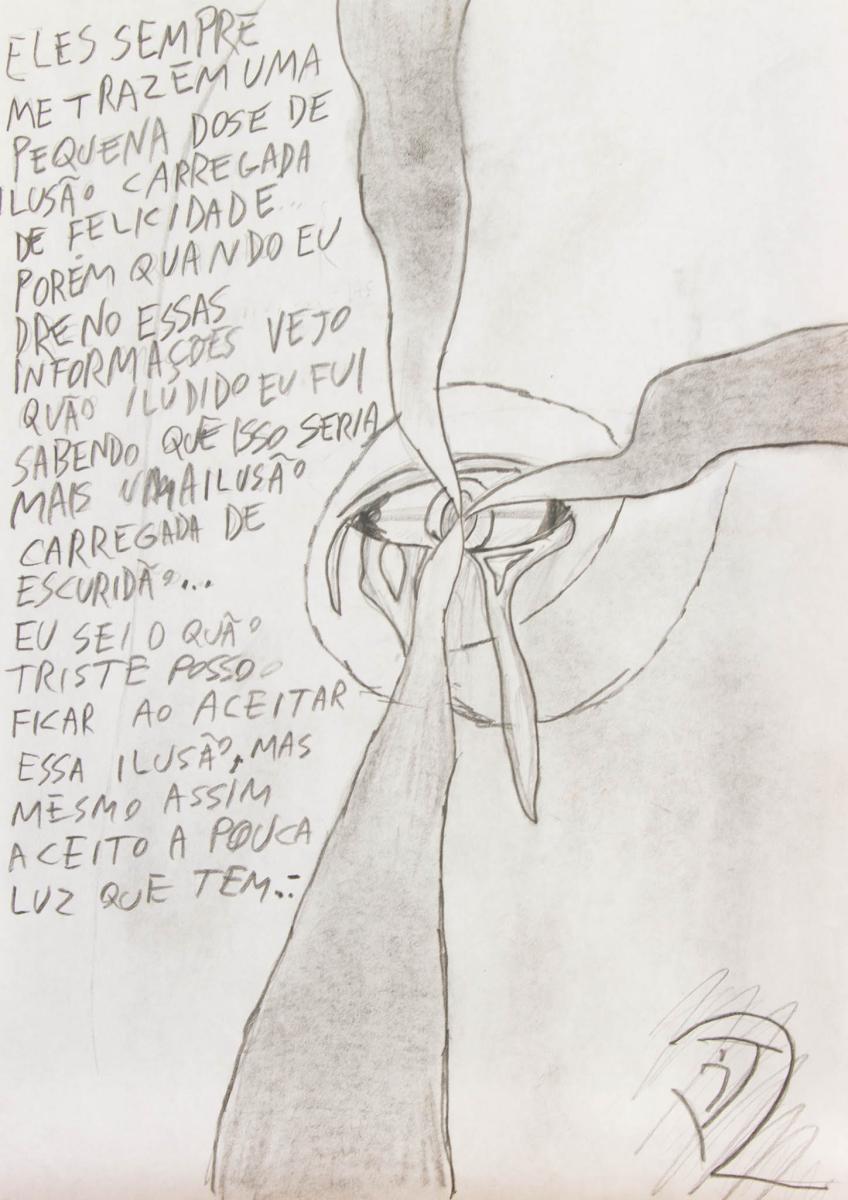 ELES SEMPRE
ME TRAZEM UMA
PEQUENA DOSE DE
ILUSÃO CARREGADA
DE FELICIDADE...
PORÉM QUANDO EU
DRENO ESSAS
INFORMAÇÕES VEJO
QUÃO ILUDIDO EU FUI
SABENDO QUE ISSO SERIA
MAIS UMA ILUSÃO
CARREGADA DE
ESCURIDÃO...
EU SEI O QUÃO
TRISTE POSSO
FICAR AO ACEITAR
ESSA ILUSÃO, MAS
MESMO ASSIM
ACEITO A POUCA
LUZ QUE TEM...